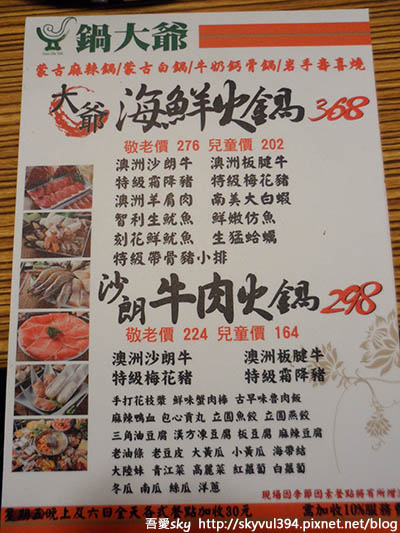 鍋大爺
蒙古麻辣鍋/蒙古白鍋/牛奶鈣骨鍋/岩手壽喜燒
大爺 海鮮火鍋 368
敬老價 276 兒童價 202
澳洲沙朗牛 澳洲板腱牛
特級霜降豬 特級梅花豬
澳洲羊肩肉 南美大白蝦
智利生魷魚 鮮嫩仿魚
刻花鮮魷魚 生猛蛤蠣
特級帶骨豬小排
沙朗 牛肉火鍋 298
敬老價 224 兒童價 164
澳洲沙朗牛 澳洲板腱牛
特級梅花豬 特級霜降豬
手打花枝漿 鮮味蟹肉棒 古早味魯肉飯
麻辣鴨血 包心貢丸 立圓魚餃 立圓燕餃
三角油豆腐 漢方凍豆腐 板豆腐 麻辣豆腐
老油條 老豆皮 大黃瓜 小黃瓜 海帶結
大陸妹 青江菜 高麗菜 紅蘿蔔 白蘿蔔
冬瓜 南瓜 絲瓜 洋蔥
現場因季節因素餐點將有所增
星期五晚上及六日全天各式餐點加收30元 需加收10%服務費
吾愛sky http://skyvul394.pixnet.net/blog